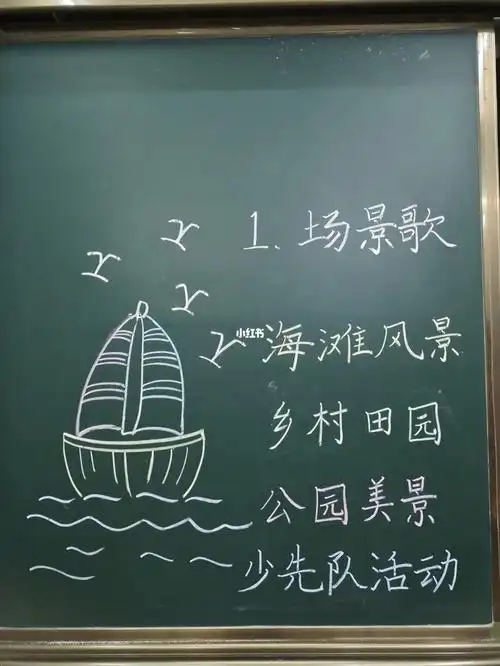 1. 场景歌
小红书
海滩风景
乡村田园
公园美景
少先队活动